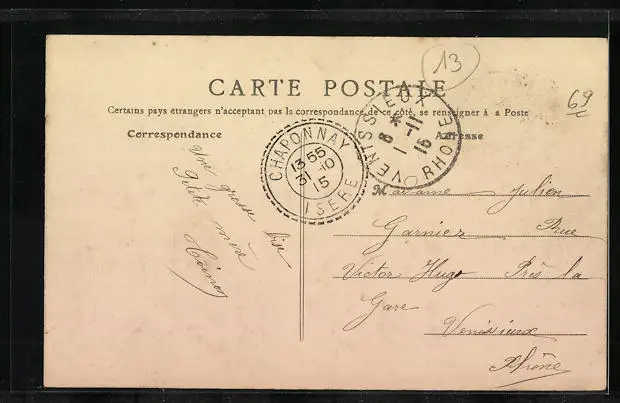 13
CARTE POSTALE
69
Certains pays étrangers n'acceptent pas la correspondance de ce côté, se renseigner à a Poste
Correspondance
Adresse
CHAPONNAY
13 55
31 -10
15
ISERE
VENISSIEUX
*
8
1 -11
15
RHONE
Une grosse bise
Petite mère
Madame Julien
Garnier Rue
Victor Hugo Près la
Gare
Venissieux
Rhône